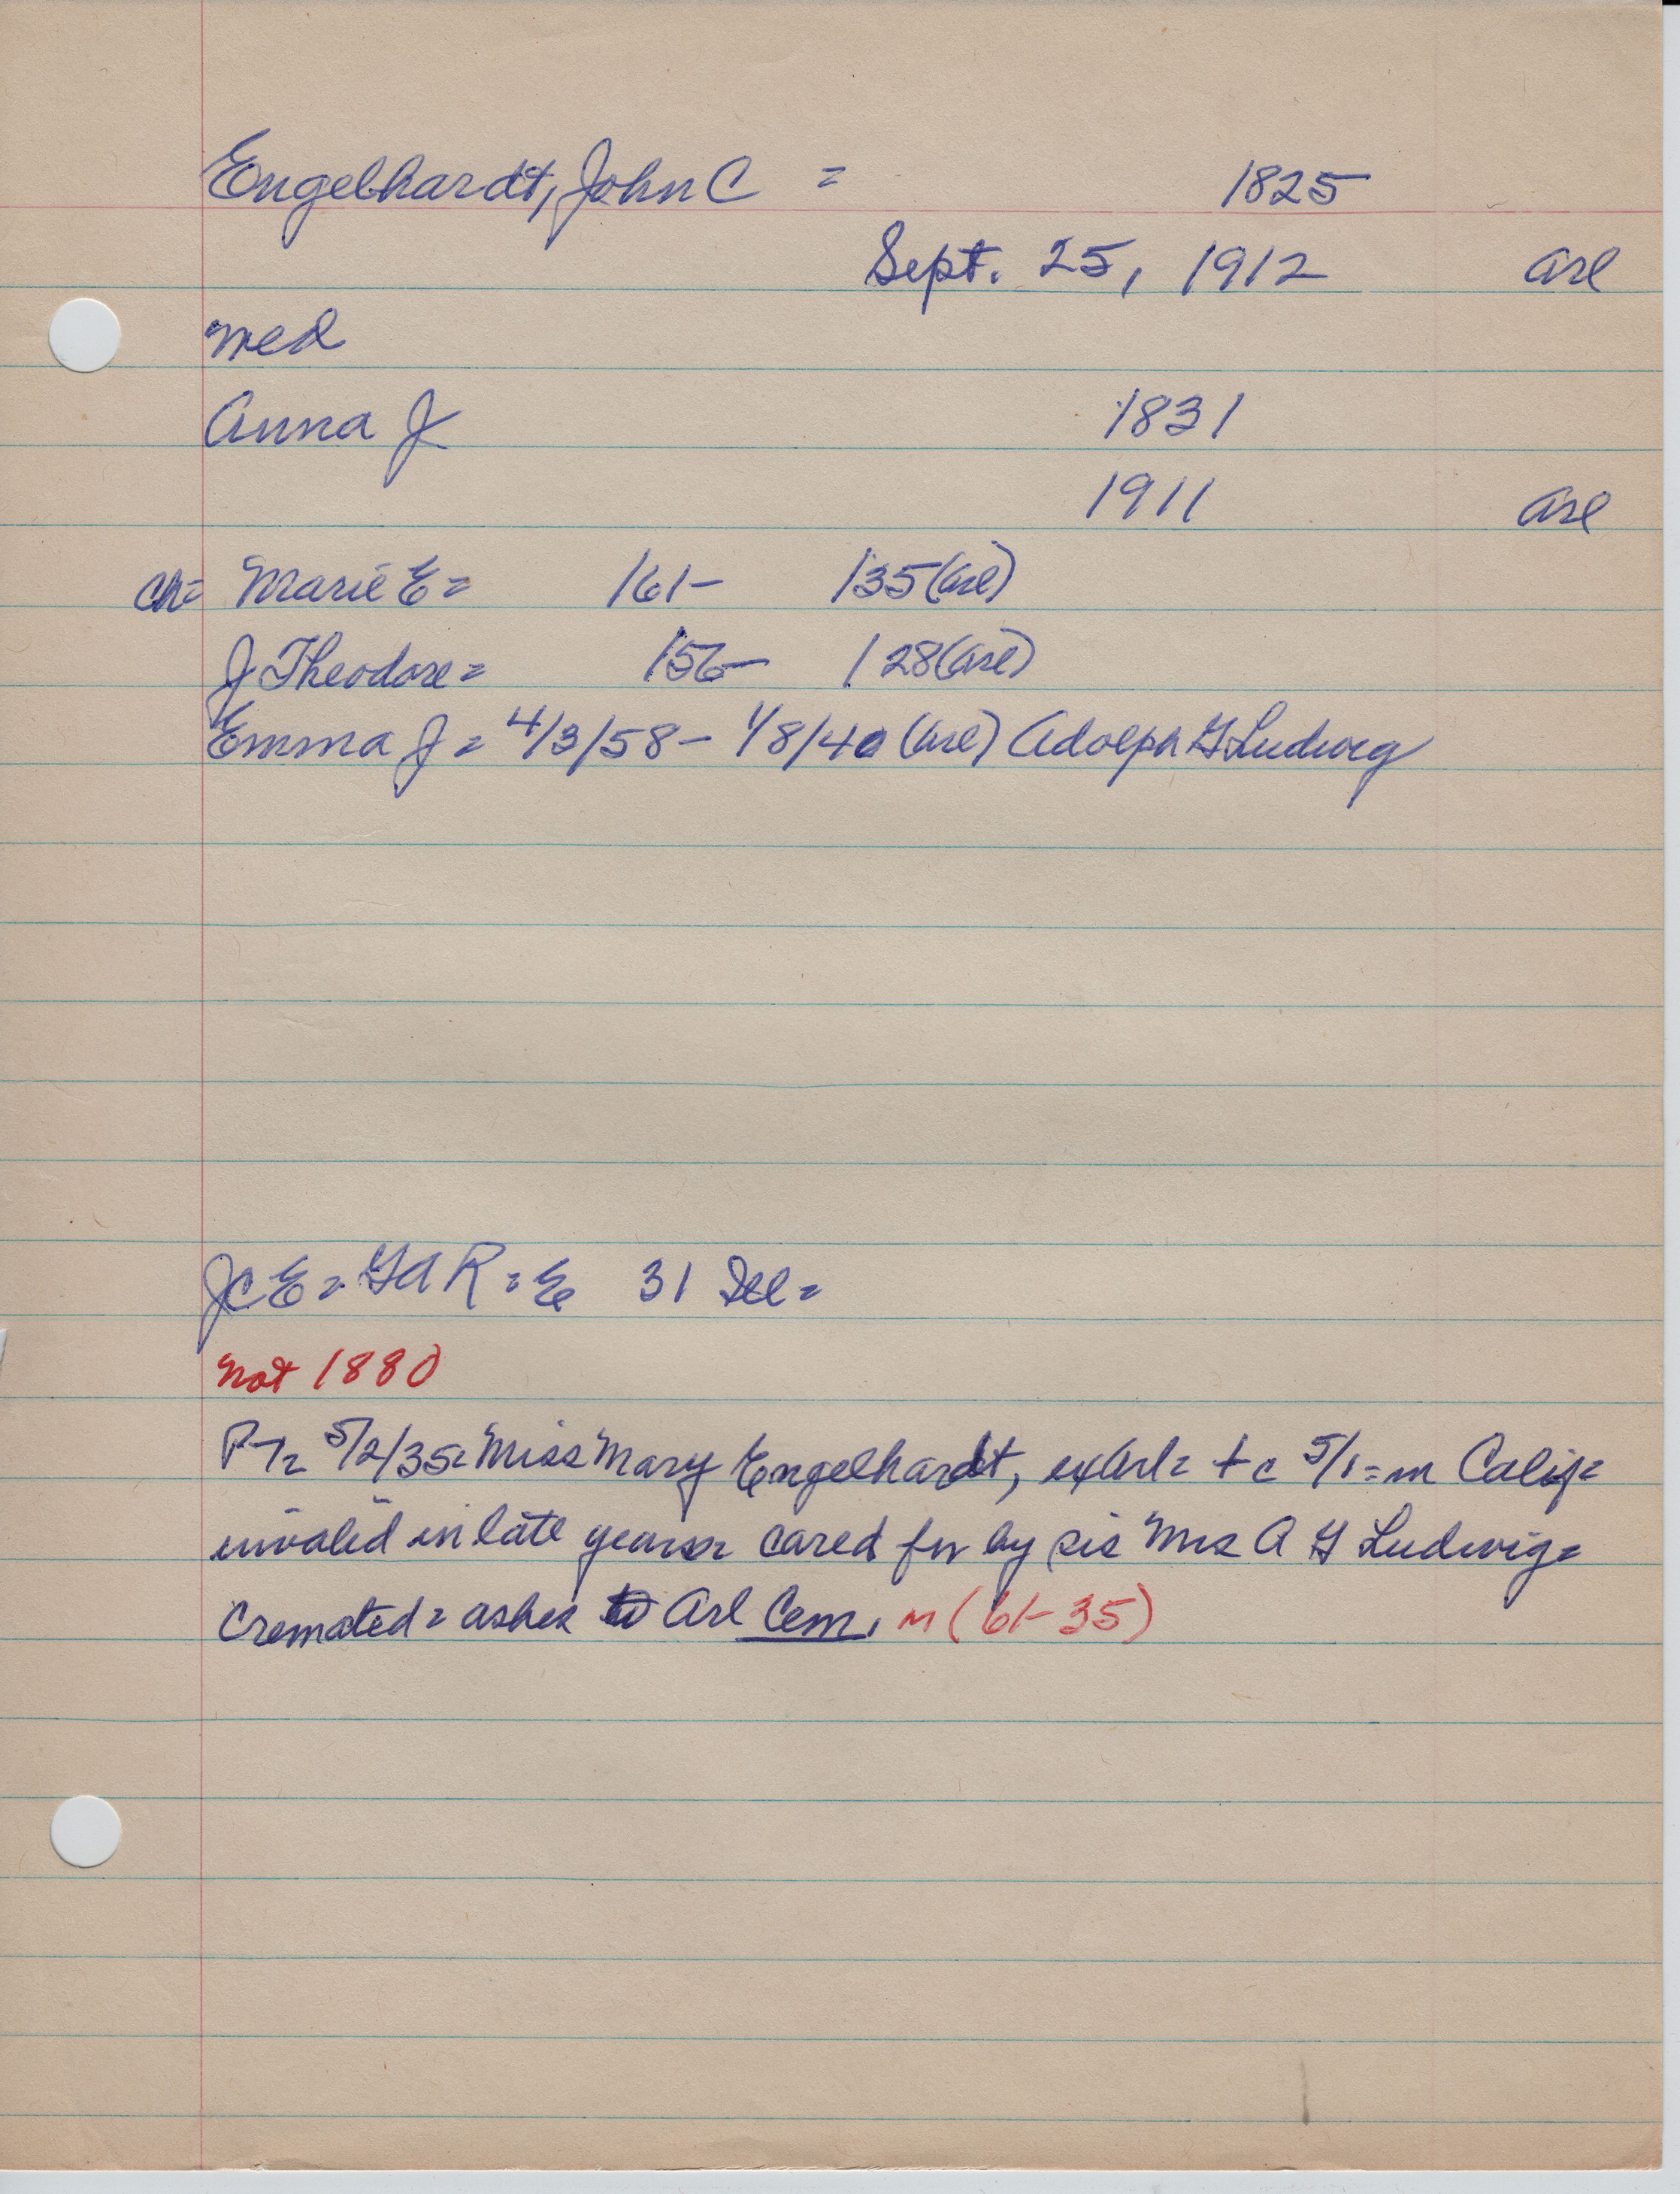 Engelhardt, John C = 1825
Sept. 25, 1912 arl
med
Anna J 1831
1911 arl
ch= Marie E = /61- /35(arl)
J Theodore = /56- /28(arl)
Emma J = 4/3/58 - 1/8/40 (arl) Adolph G Ludwig
JCE = GAR = E 31
not 1880
5/2/35= Miss Mary Engelhardt, exArl= 5/1 = in Calif=
invalid in late years= cared for by sis Mrs A G Ludwig=
Cremated = ashes to Arl Cem. (61-35)